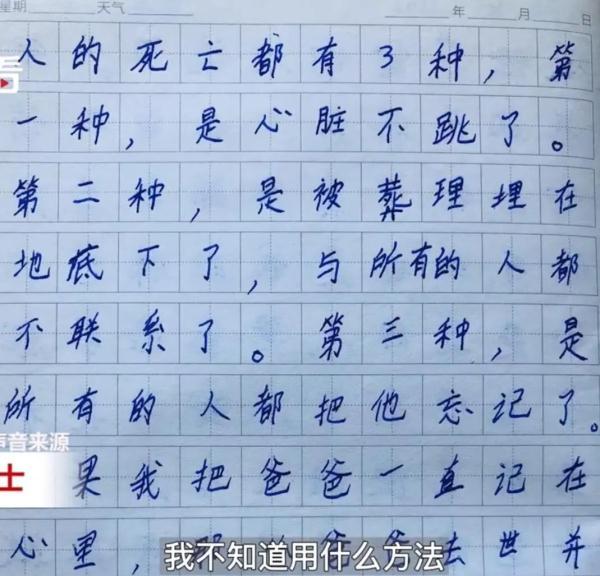 星期 天气 年 月 日
人的死亡都有3种，第
一种，是心脏不跳了。
第二种，是被葬理埋在
地底下了，与所有的人都
不联系了。第三种，是
所有的人都把他忘记了。
声音来源
士
果我把爸爸一直记在
心里，去世并
我不知道用什么方法